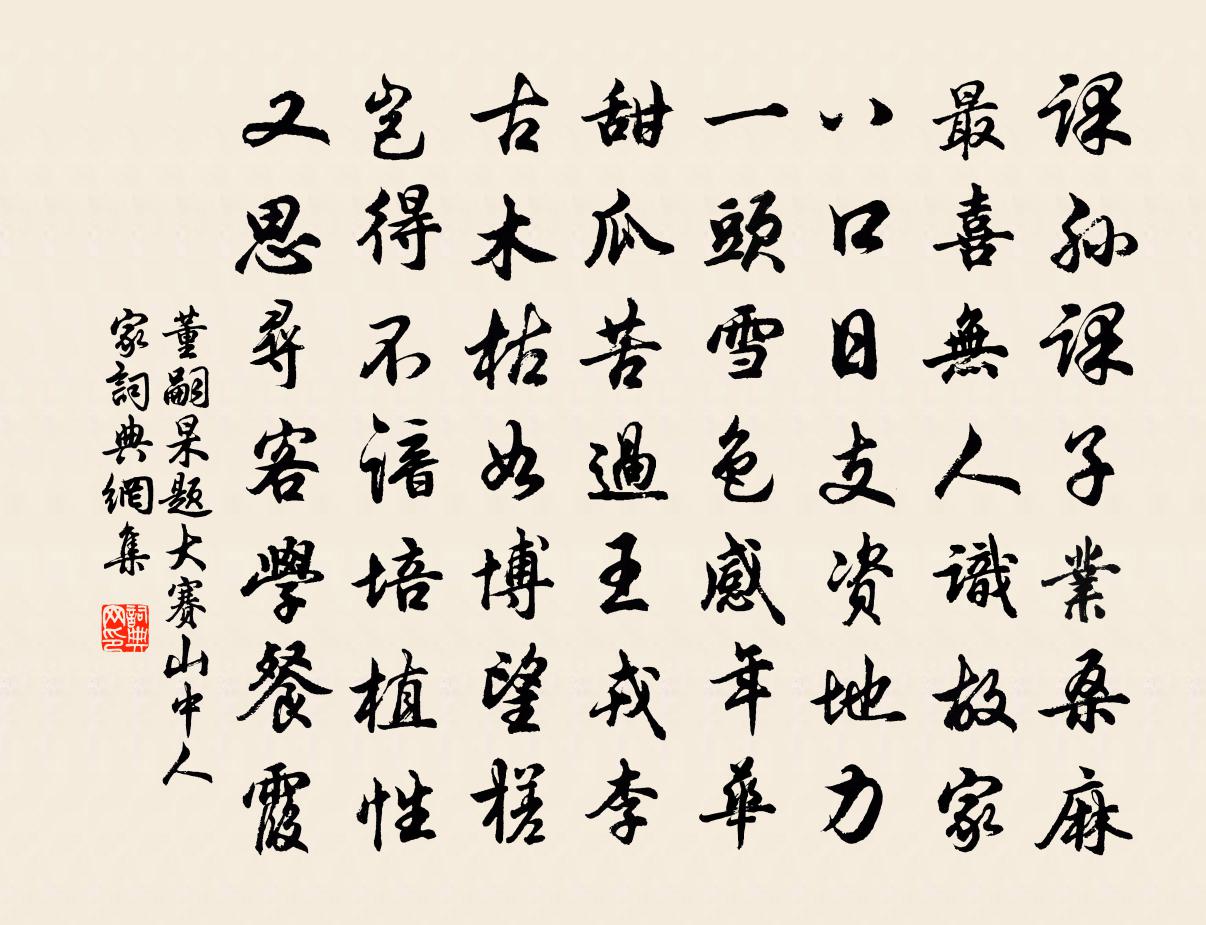 課孫課子業桑麻
最喜無人識故家
八口日支資地力
一頭雪色感年華
甜瓜苦過王戎李
古木枯如博望槎
豈得不諳培植性
又思尋客學餐霞
董嗣杲題大賽山中人
家詞典網集
詞典
网印